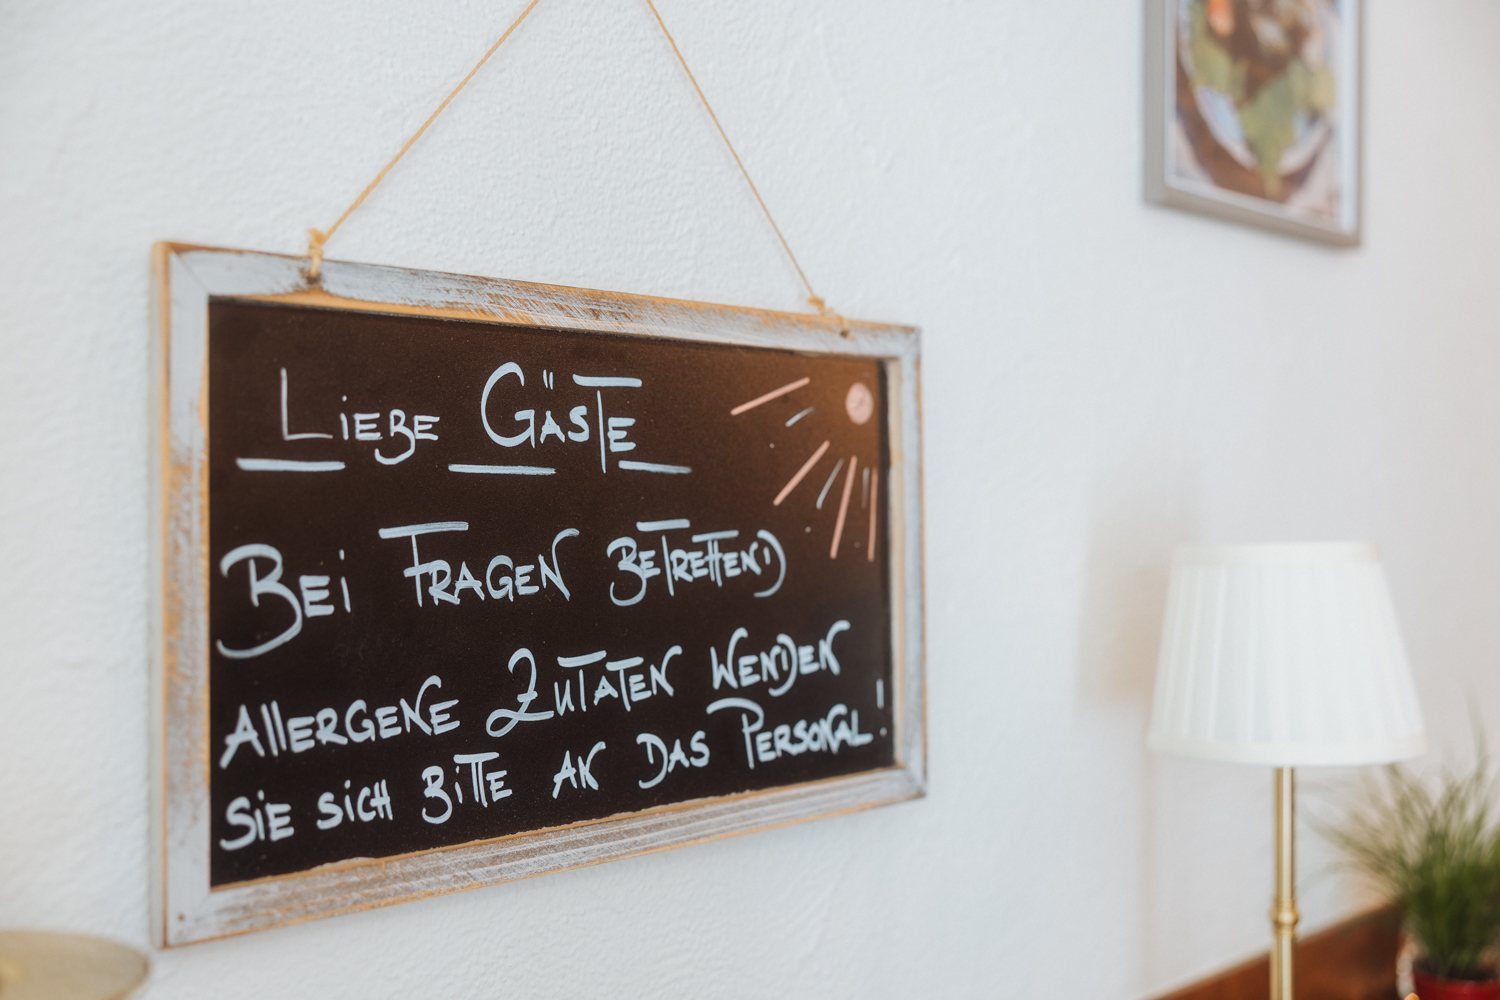 Liebe Gäste
Bei Fragen betreffend
allergene Zutaten wenden
Sie sich bitte an das Personal!